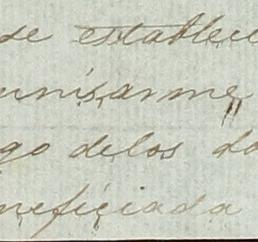 se establec
unisarme
go delos do
neficiada